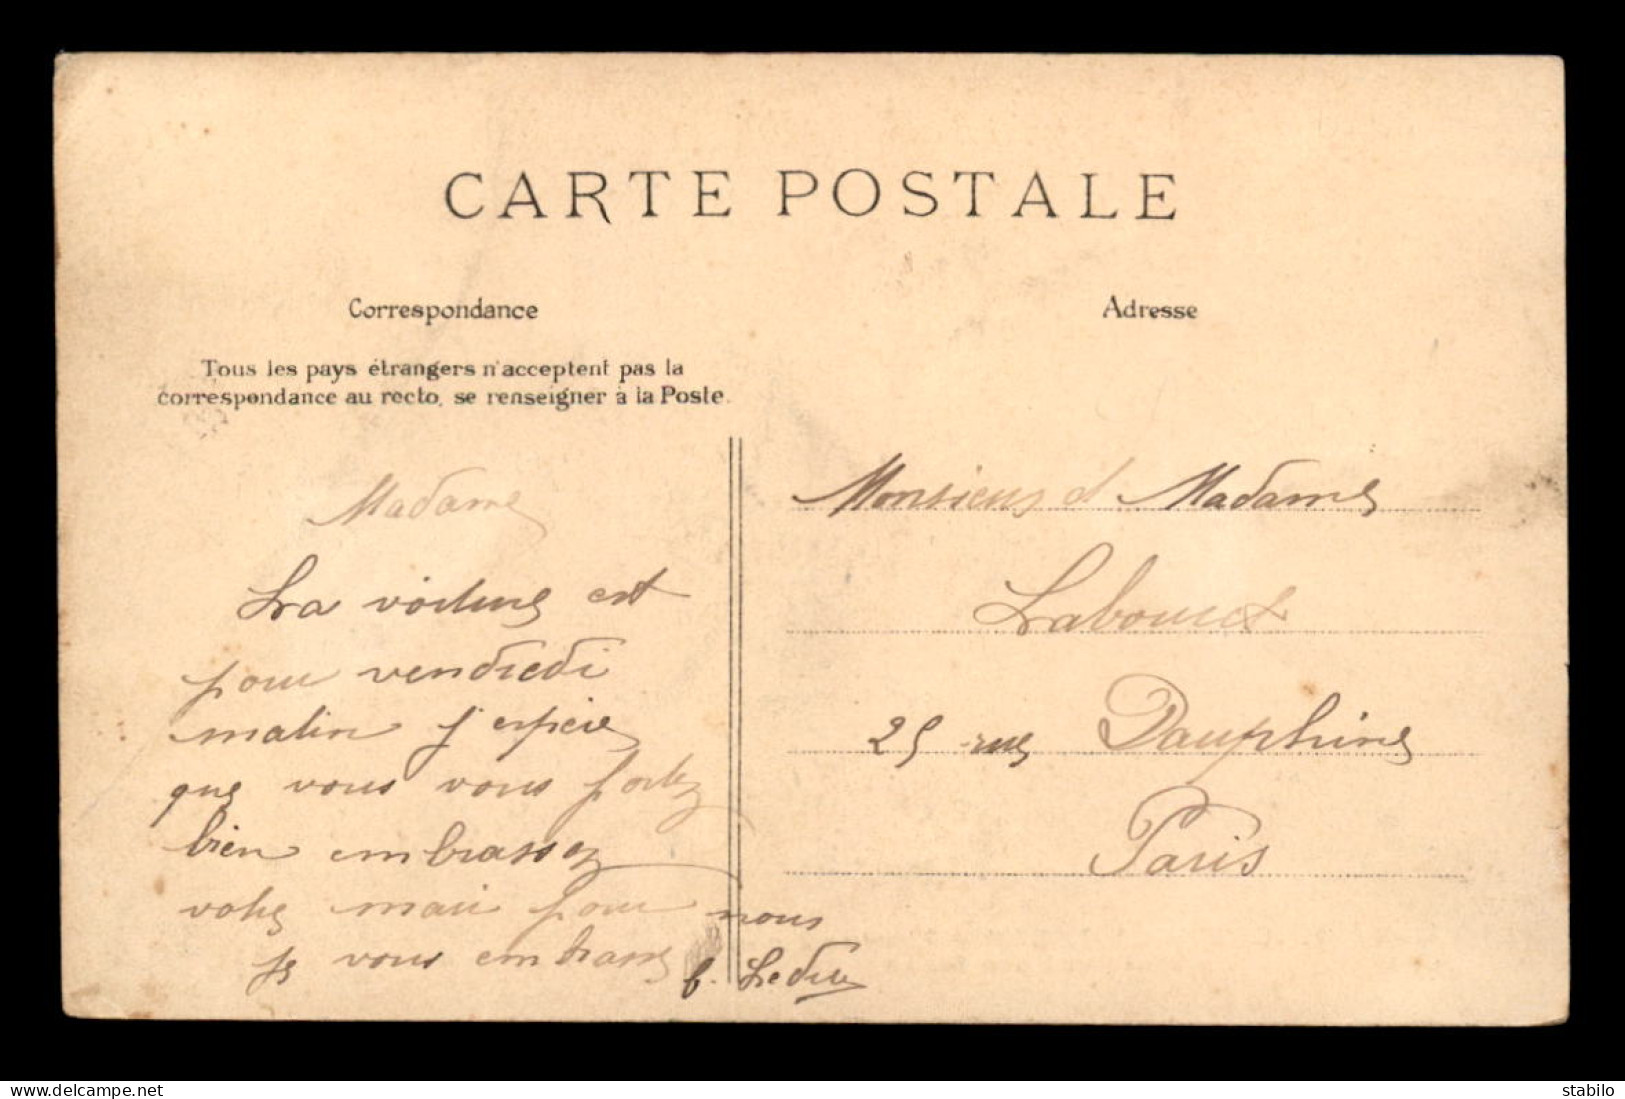 CARTE POSTALE
Correspondance
Tous les pays étrangers n'acceptent pas la
correspondance au recto, se renseigner à la Poste.
Madame
La voiture est
pour vendredi
matin j'espère
que vous vous portez
bien embrassez
votre mari pour nous
je vous embrasse
Ledru
Adresse
Monsieur et Madame
Labouret
25 rue Dauphine
Paris
www.delcampe.net
stabilo